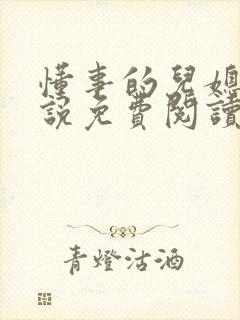 懂事的兒媳
說免費閱讀
青燈沽酒